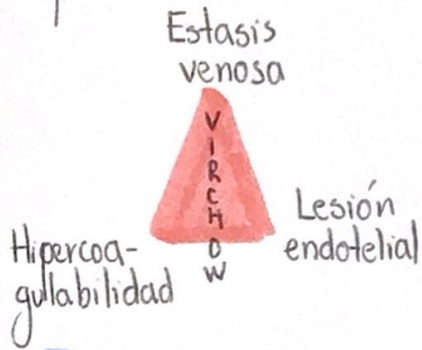 Estasis
venosa
VIRCHOW
Lesión
endotelial
Hipercoa-
gullabilidad